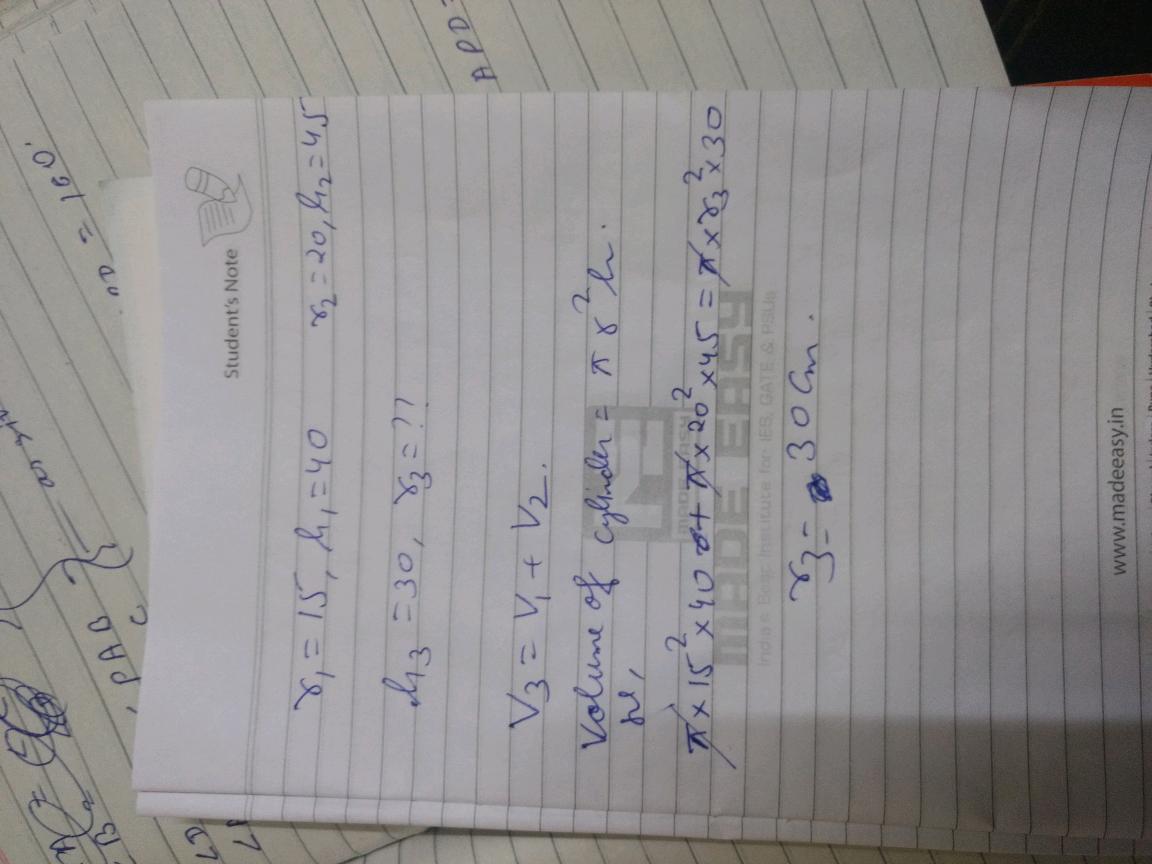 Student's Note
r₁ = 15, h₁ = 40 r₂ = 20, h₂ = 45
h₃ = 30, r₃ = ??
V₃ = V₁ + V₂.
Volume of cylinder = π r² h.
π × 15² × 40 + π × 20² × 45 = π × r₃² × 30
r₃ = 30 cm.
MADE EASY
MADE EASY
India's Best Institute for IES, GATE & PSUs
www.madeeasy.in
APD =
= 180°
PAB